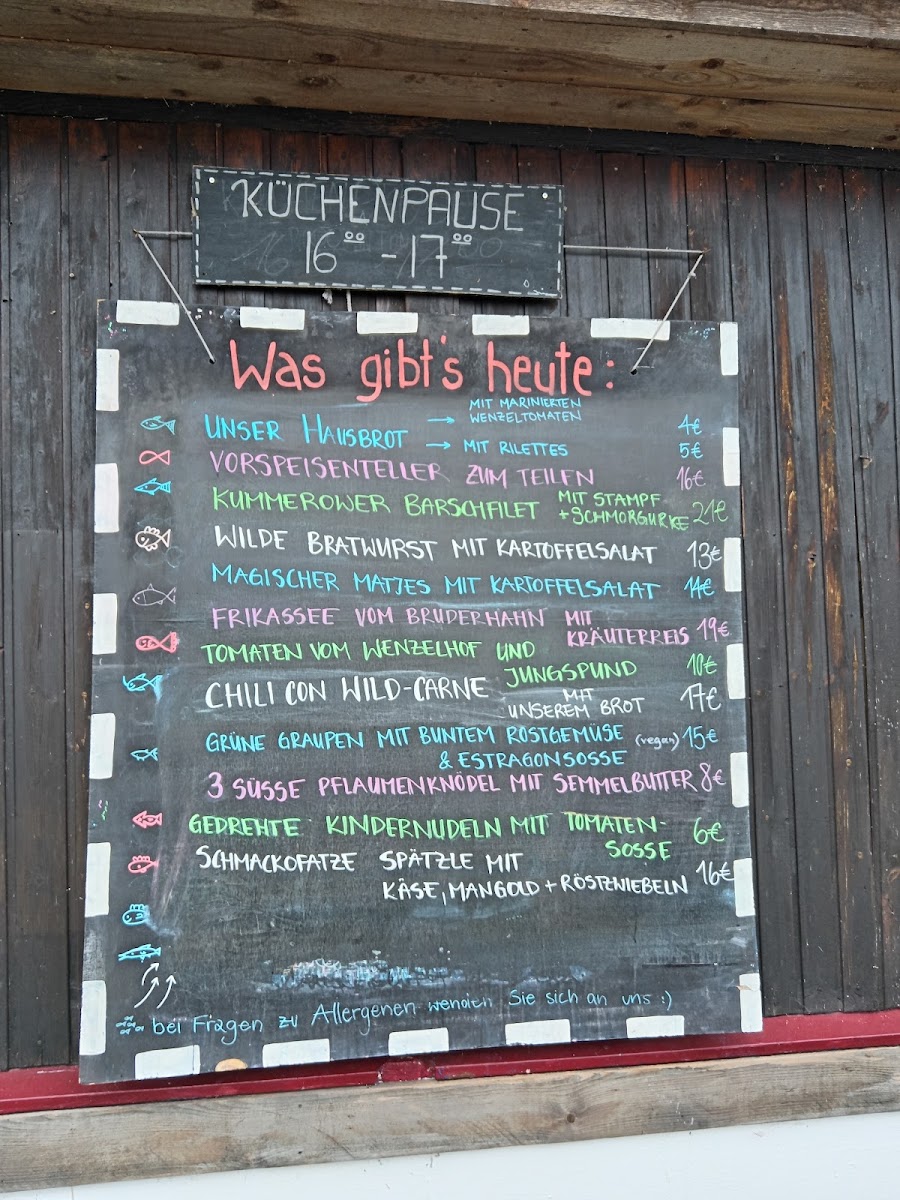 KÜCHENPAUSE
16⁰⁰ - 17⁰⁰
Was gibt's heute:
UNSER HAUSBROT → MIT MARINIERTEN WENZELTOMATEN 4€
→ MIT RILETTES 5€
VORSPEISENTELLER ZUM TEILEN 16€
KUMMEROWER BARSCHFILET MIT STAMPF + SCHMORGURKE 21€
WILDE BRATWURST MIT KARTOFFELSALAT 13€
MAGISCHER MATJES MIT KARTOFFELSALAT 14€
FRIKASSEE VOM BRUDERHAHN MIT KRÄUTERREIS 19€
TOMATEN VOM WENZELHOF UND
JUNGSPUND 10€
CHILI CON WILD-CARNE MIT UNSEREM BROT 17€
GRÜNE GRAUPEN MIT BUNTEM ROSTGEMÜSE (vegan) 15€
& ESTRAGONSOSSE
3 SÜSSE PFLAUMENKNÖDEL MIT SEMMELBUTTER 8€
GEDREHTE KINDERNUDELN MIT TOMATEN-
SOSSE 6€
SCHMACKOFATZE SPÄTZLE MIT
KÄSE, MANGOLD + RÖSTZWIEBELN 16€
bei Fragen zu Allergenen wenden Sie sich an uns :)